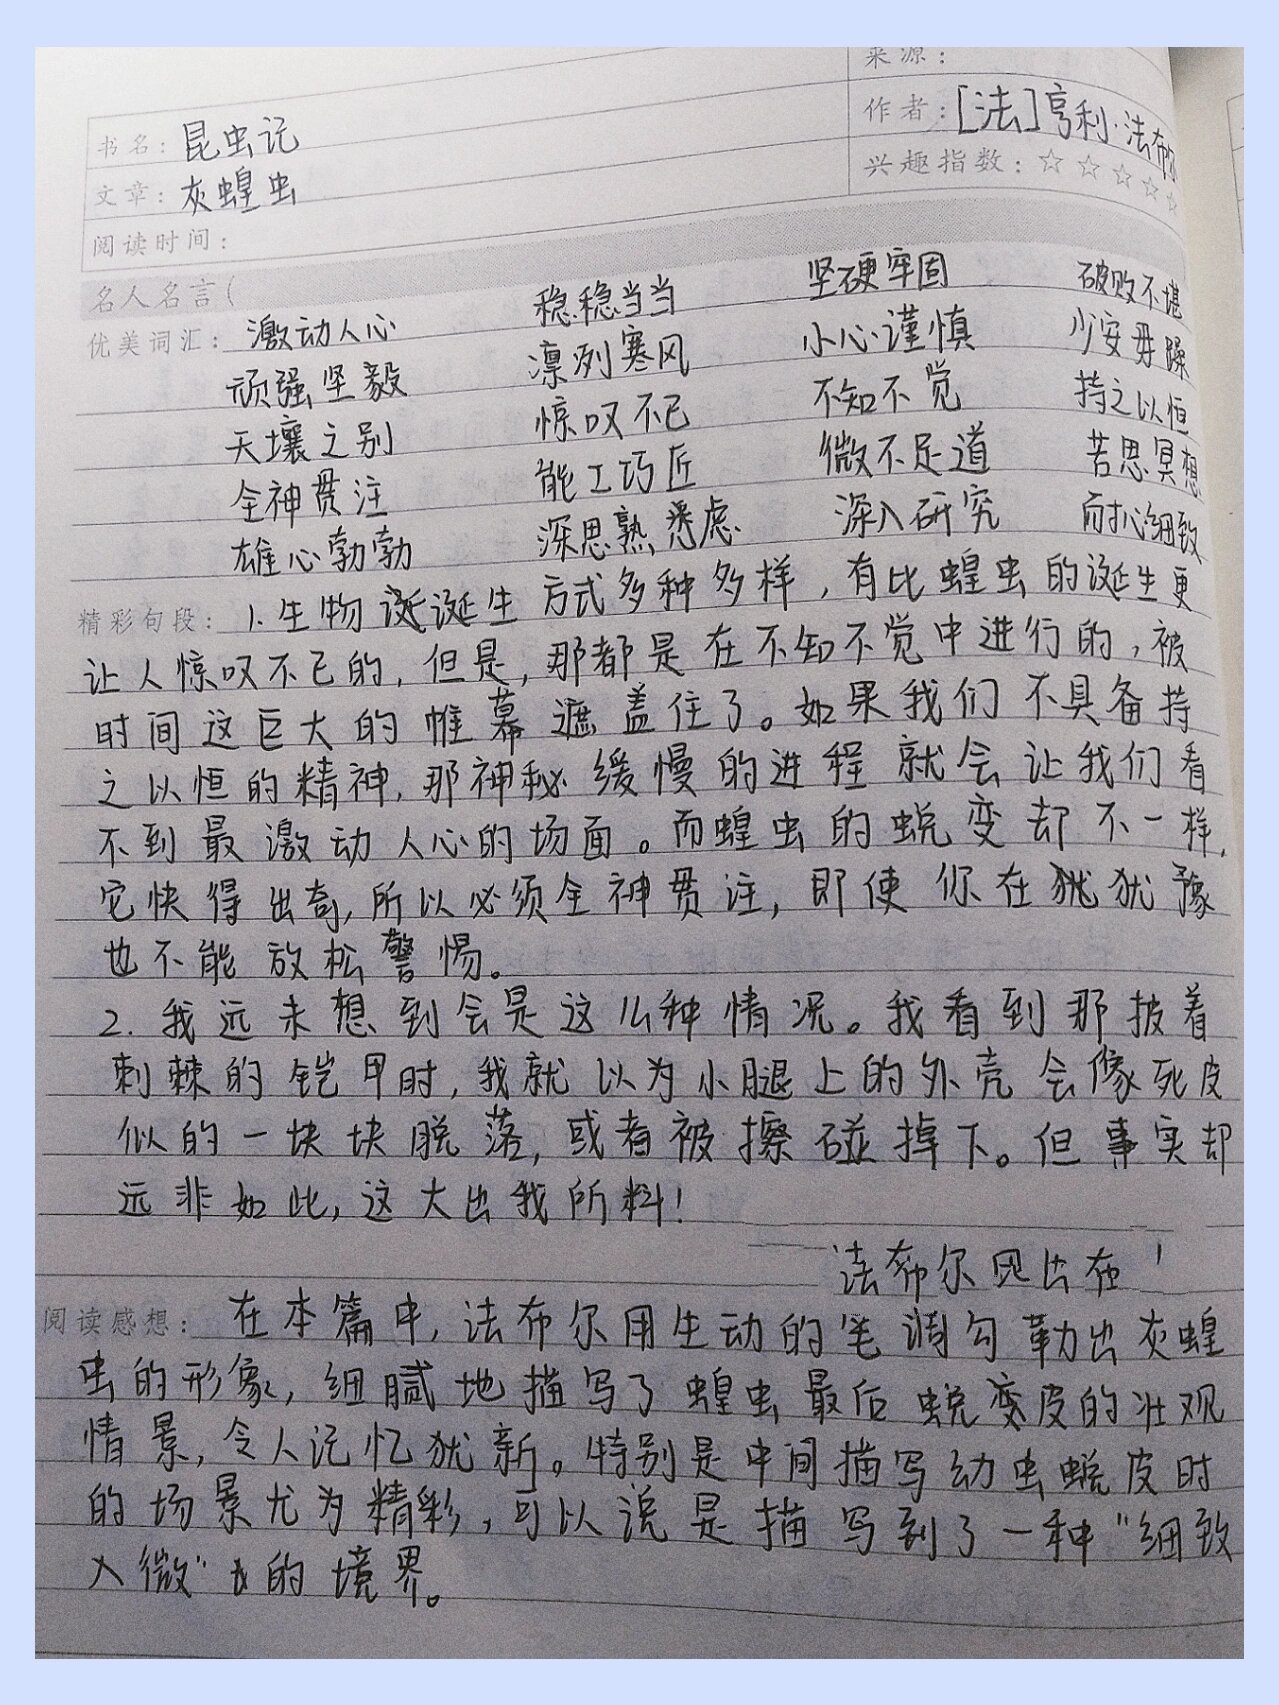 来源：
书名：昆虫记 作者：[法]亨利·法布尔
文章：灰蝗虫 兴趣指数：☆☆☆☆☆
阅读时间：
名人名言(
优美词汇：激动人心 稳稳当当 坚硬牢固 破败不堪
顽强坚毅 凛冽寒风 小心谨慎 少安毋躁
天壤之别 惊叹不已 不知不觉 持之以恒
全神贯注 能工巧匠 微不足道 苦思冥想
雄心勃勃 深思熟悉虑 深入研究 而扒细致
精彩句段：1.生物诞诞生方式多种多样，有比蝗虫的诞生更
让人惊叹不已的，但是，那都是在不知不觉中进行的，被
时间这巨大的帷幕遮盖住了。如果我们不具备持
之以恒的精神，那神秘缓慢的进程就会让我们看
不到最激动人心的场面。而蝗虫的蜕变却不一样，
它快得出奇，所以必须全神贯注，即使你在犹犹豫
也不能放松警惕。
2.我远未想到会是这么种情况。我看到那披着
刺棘的铠甲时，我就以为小腿上的外壳会像死皮
似的一块块脱落，或者被擦碰掉下。但事实却
远非如此，这大出我所料！
法布尔
阅读感想：在本篇中，法布尔用生动的笔调勾勒出灰蝗
虫的形象，细腻地描写了蝗虫最后蜕变皮的壮观
情景，令人记忆犹新。特别是中间描写幼虫蜕皮时
的场景尤为精彩，可以说是描写到了一种“细致
入微”的境界。